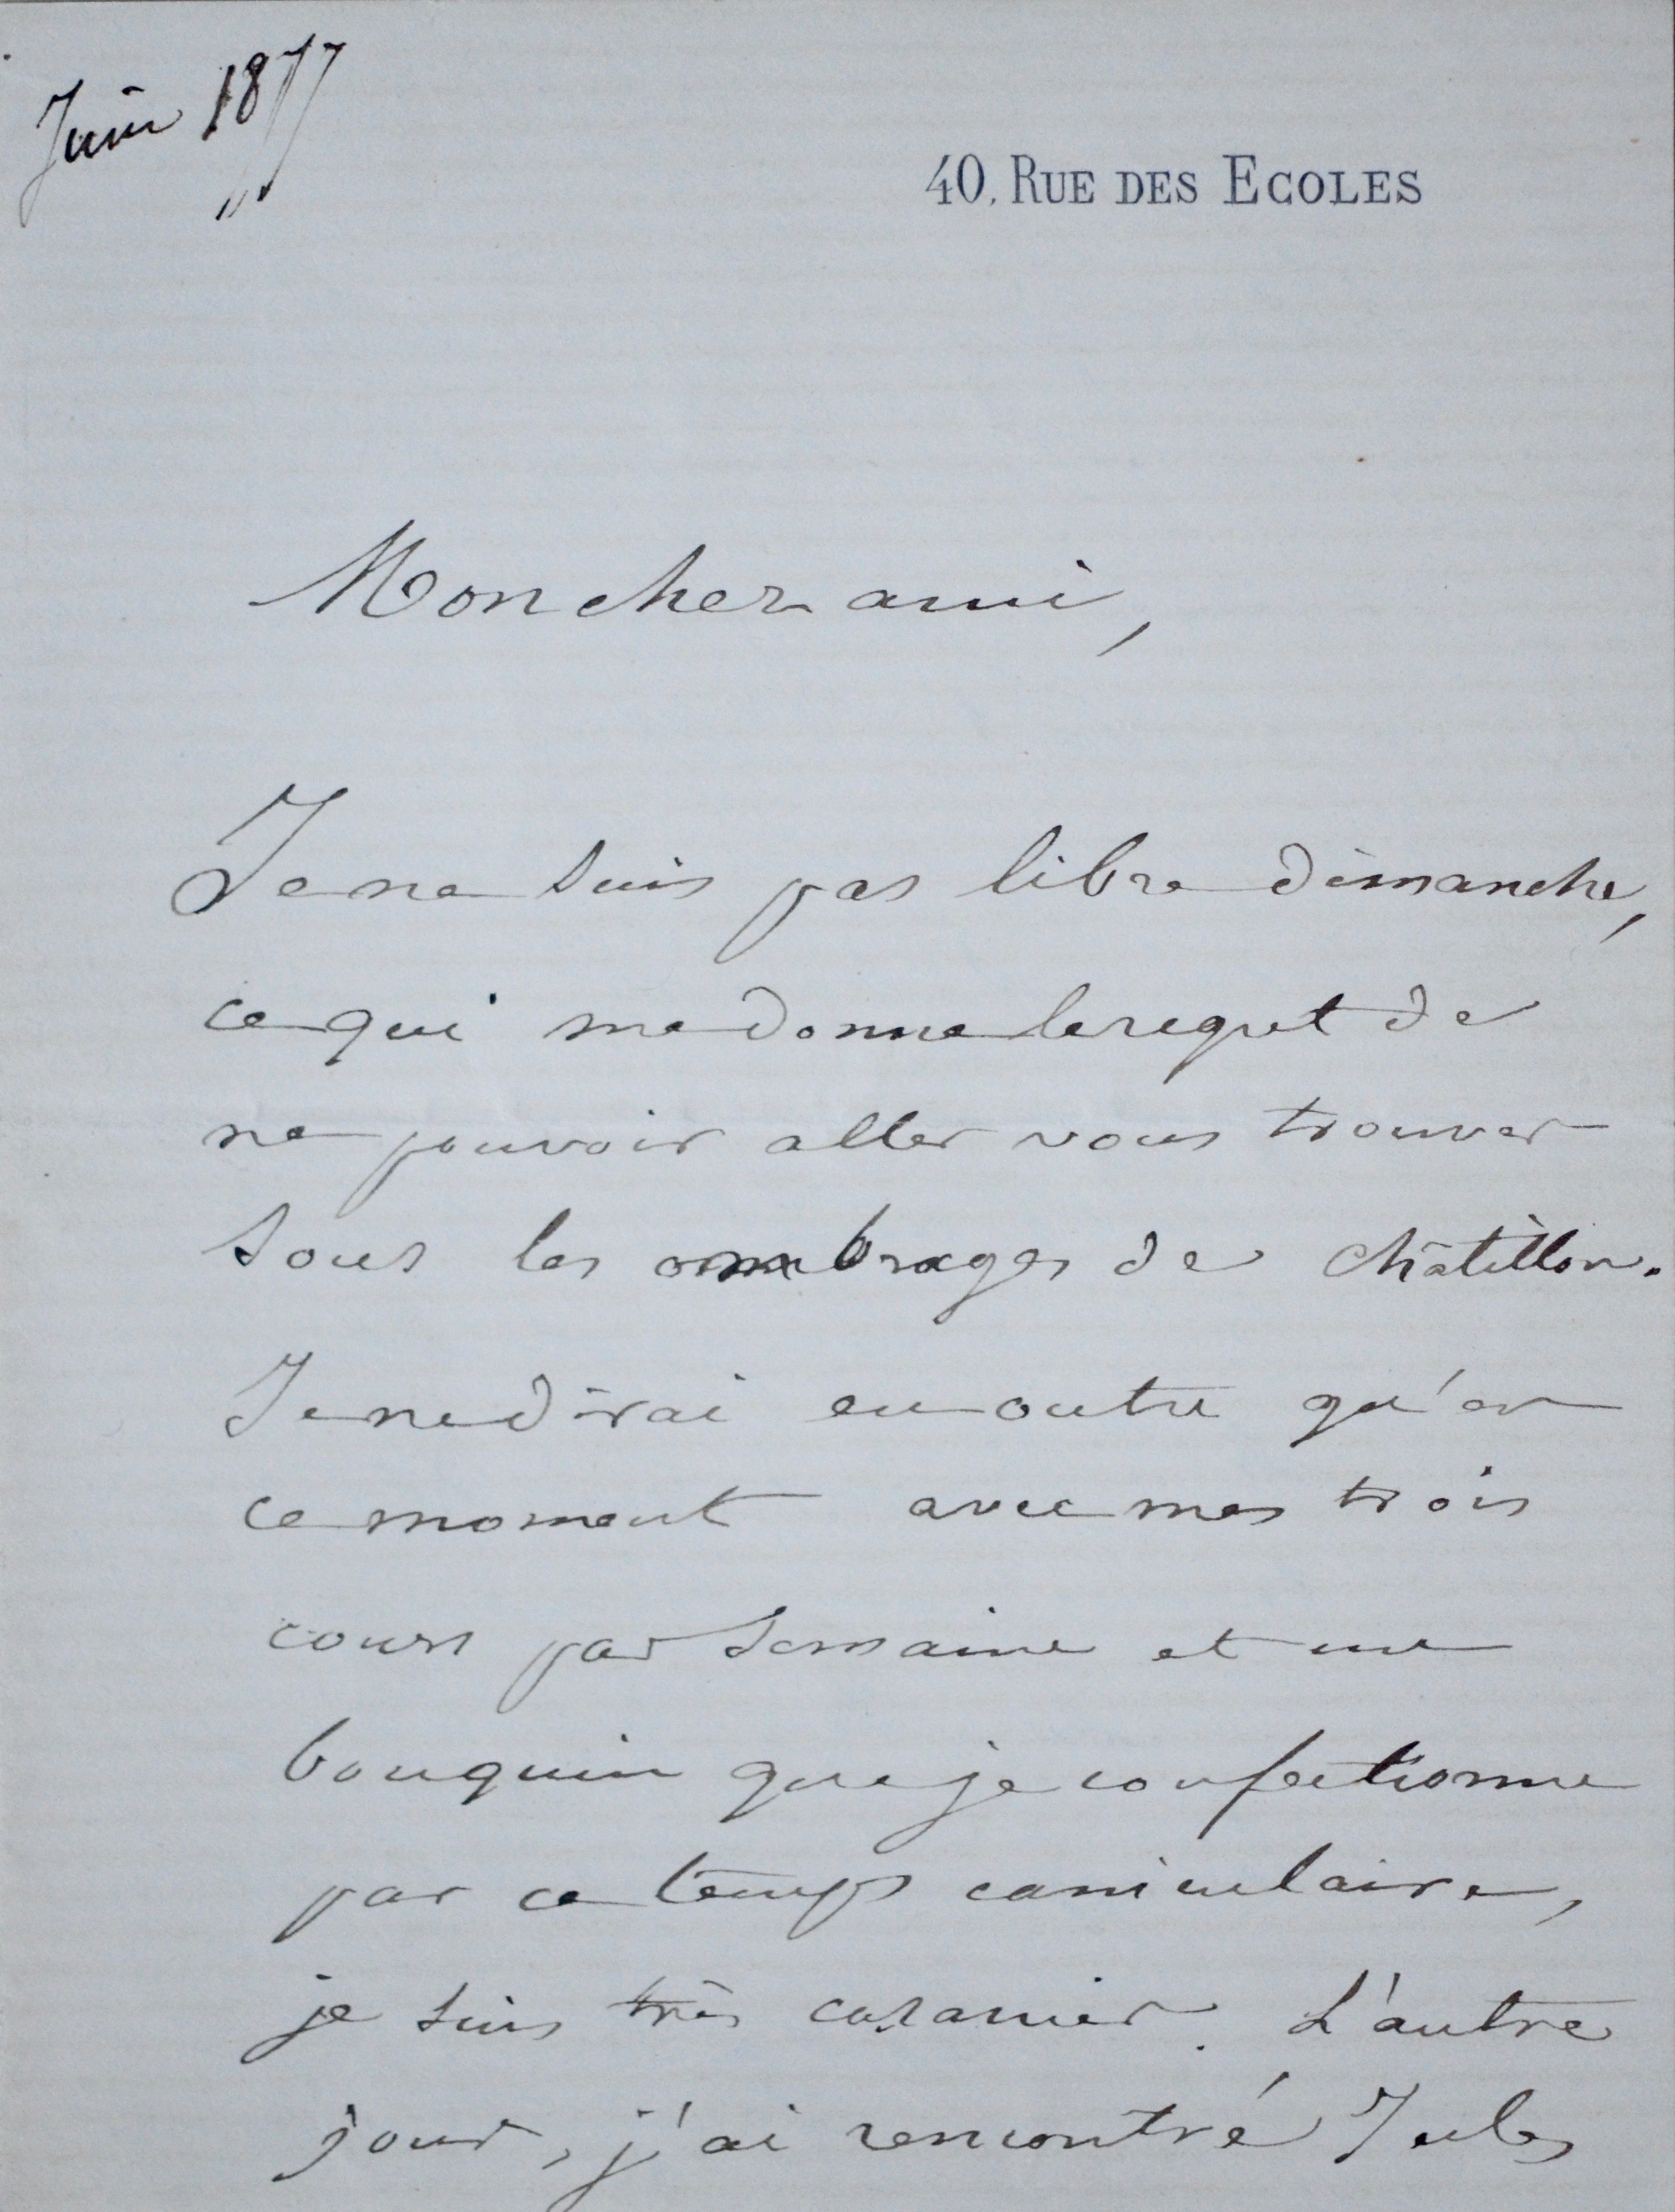 Juin 1877
40, RUE DES ECOLES
Mon cher ami,
Je ne suis pas libre dimanche,
ce qui me donne le regret de
ne pouvoir aller vous trouver
sous les ombrages de Châtillon.
Je ne dirai en outre qu'en
ce moment avec mes trois
cours par semaine et un
bouquin que je confectionne
par ce temps caniculaire,
je suis très casanier. L'autre
jour, j'ai rencontré Jules